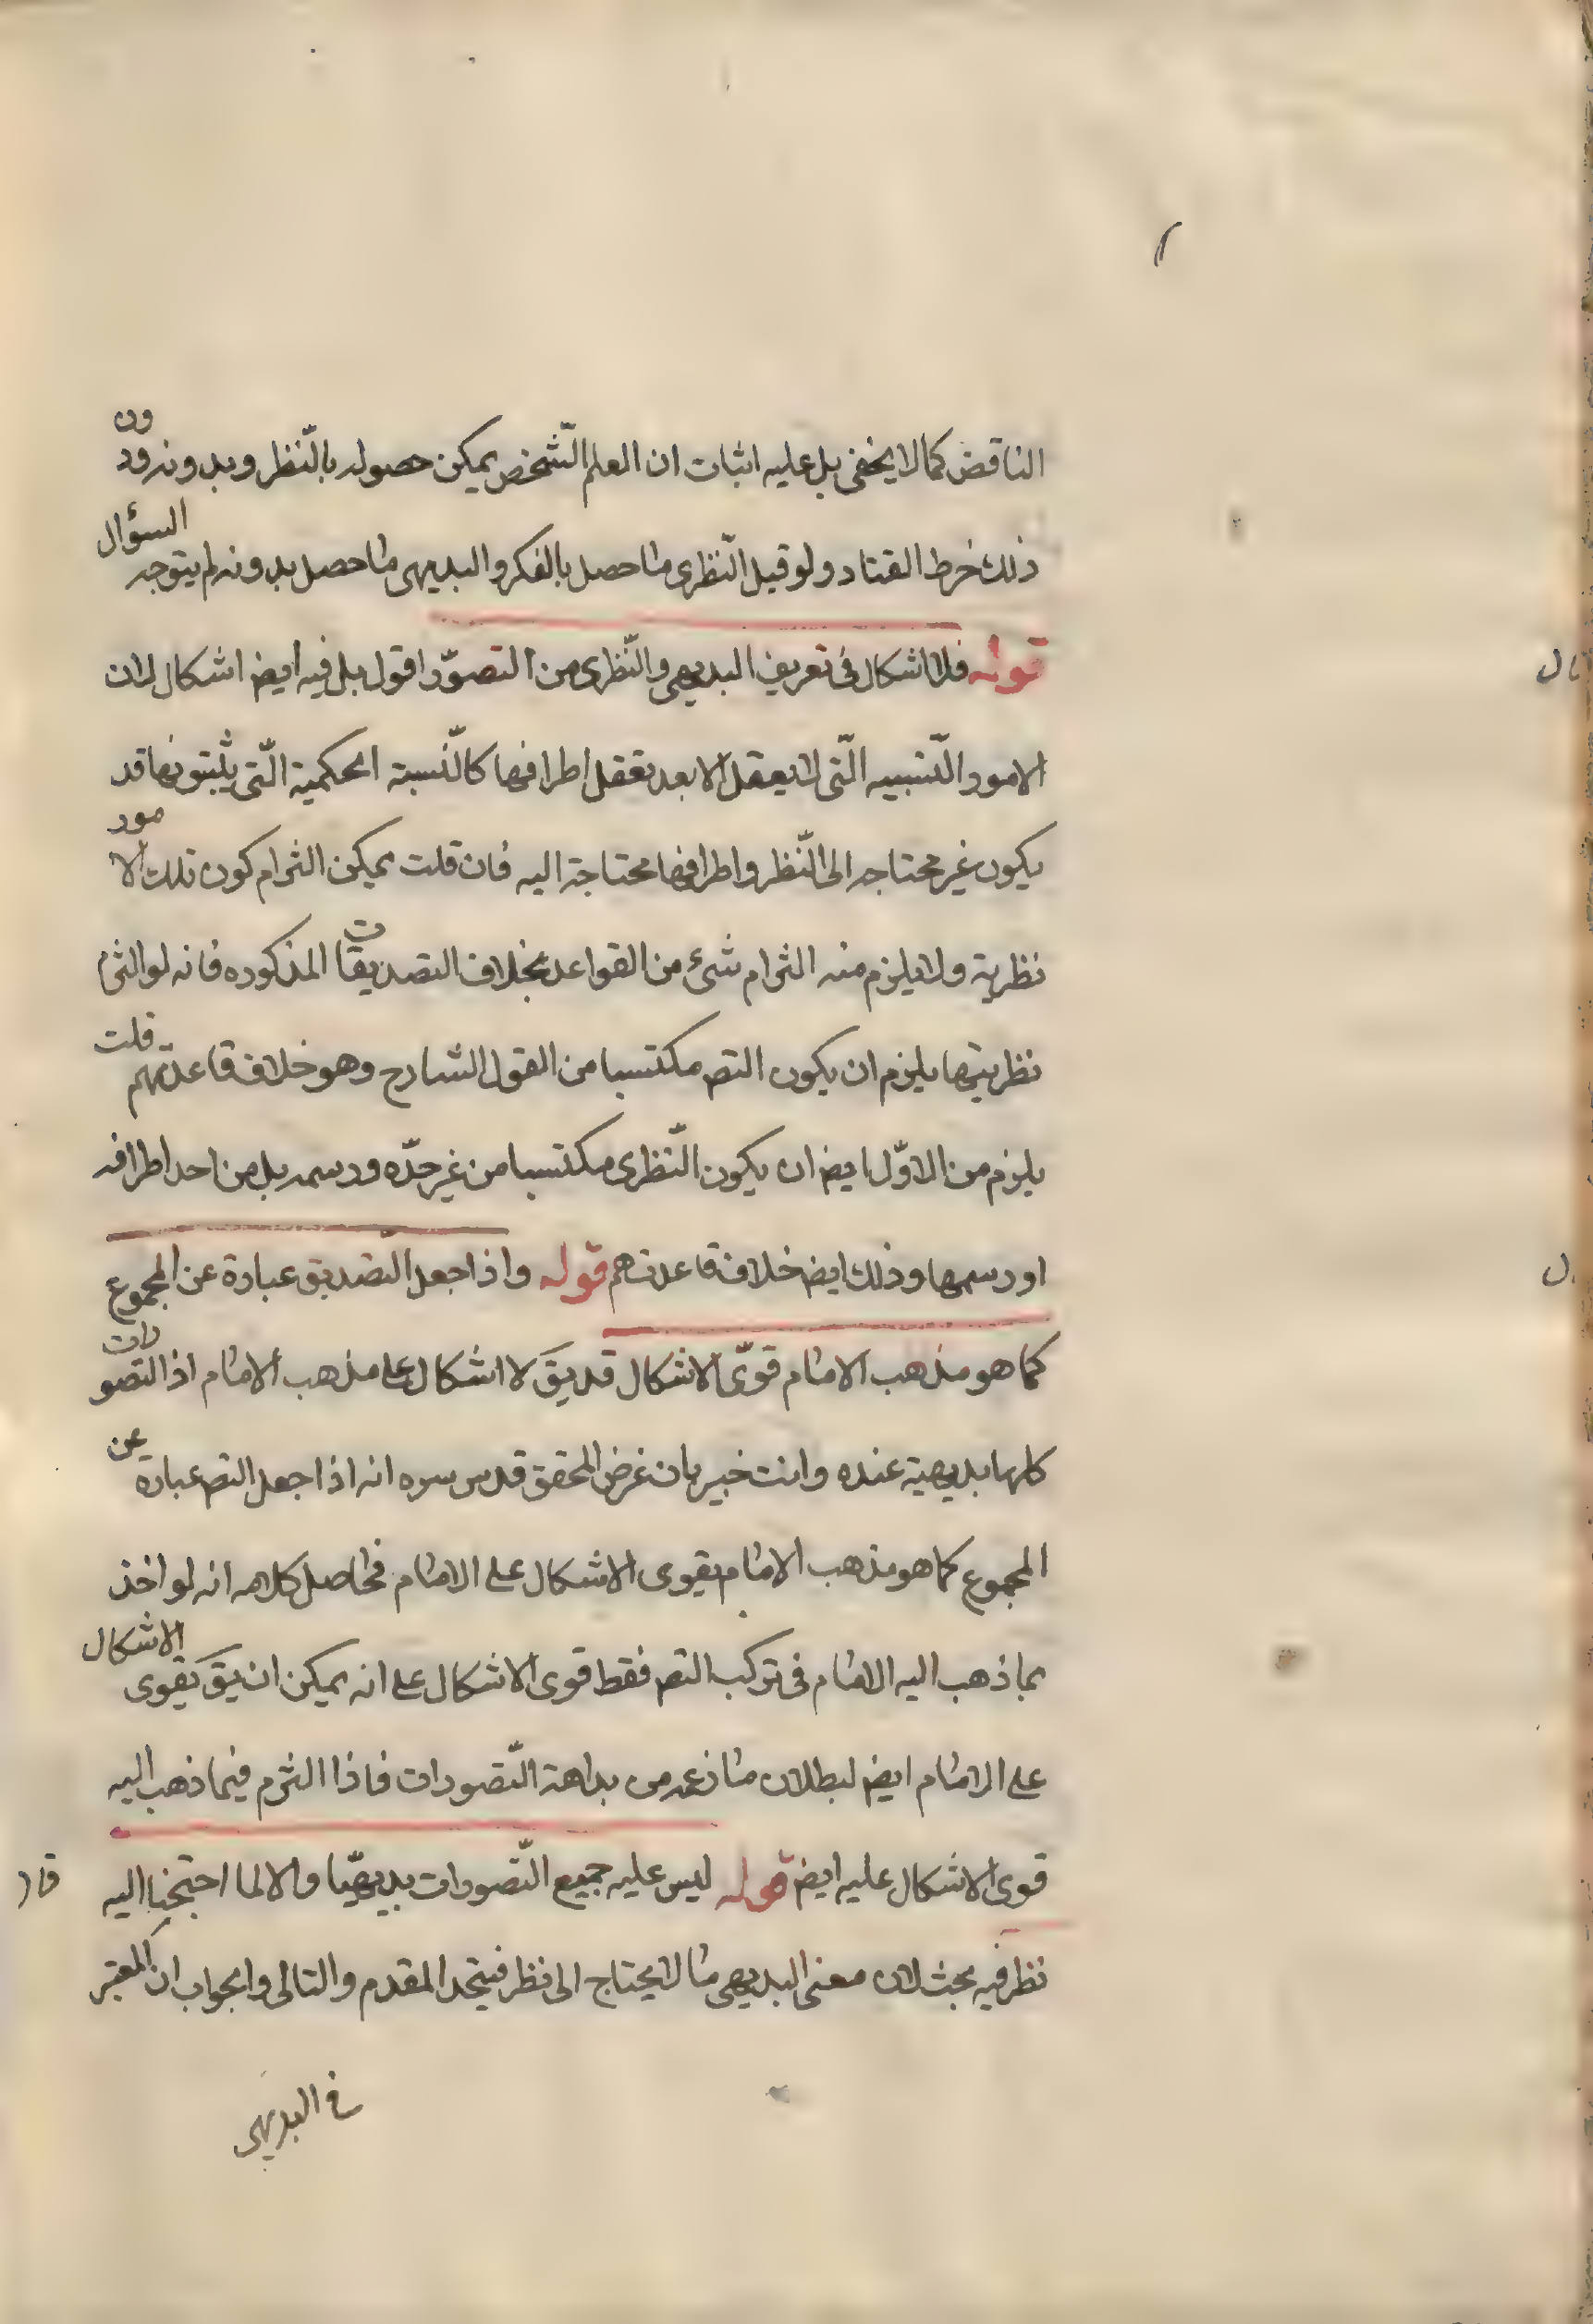 الناقض كما لا يخفى بل عليه اثبات ان العلم الشّخص يمكن حصوله بالنّظر وبدونه ودون
ذلك خرط القتاد ولو قيل النّظرى ما حصل بالفكر والبديهى ما حصل بدونه لم يتوجه السؤال
قوله فلا اشكال فى تعريف البديهى والنّظرى من التصوّر اقول بل فيه ايض اشكال لان
الامور النّسبيه الّتى لا يعقل الا بعد تعقل اطرافها كالنّسبة الحكمية الّتى يثبتونها قد
يكون غير محتاجه الى النّظر واطرافها محتاجة اليه فان قلت يمكن التزام كون تلك الامور
نظرية ولا يلزم منه التزام شئ من القواعد بخلاف التصديقات المذكوره فانه لو التزم
نظريتها يلزم ان يكون التصـ مكتسبا من القول الشارح وهو خلاف قاعدتهم قلت
يلزم من الاوّل ايض ان يكون النّظرى مكتسبا من غير حدّه ورسمه بل من احد اطرافه
او رسمها وذلك ايض خلاف قاعدتهم قوله واذا جعل التّصديق عبارة عن المجموع
كما هو مذهب الامام قوّى الاشكال قد يقَ لا اشكال على مذهب الامام اذ التصورات
كلها بديهية عنده وانت خبير بان غرض المحقق قدس سره انه اذا جعل التصـ عبارة عن
المجموع كما هو مذهب الامام يقوى الاشكال على الامام فحاصل كلامه انه لو اخذ
بما ذهب اليه الامام فى تركب التصـ فقط قوى الاشكال على انه يمكن ان يقَ يقوى الاشكال
على الامام ايض لبطلان ما زعمه من بداهة التّصورات فاذا التزم فيما ذهب اليه
قوى الاشكال عليه ايض قوله ليس عليه جميع التّصورات بديهيّا والا لما احتجنا اليه
نظر فيه بحث لان معنى البديهى ما لا يحتاج الى نظر فيتحد المقدم والتالى والجواب ان المعتبر
فى البديهى